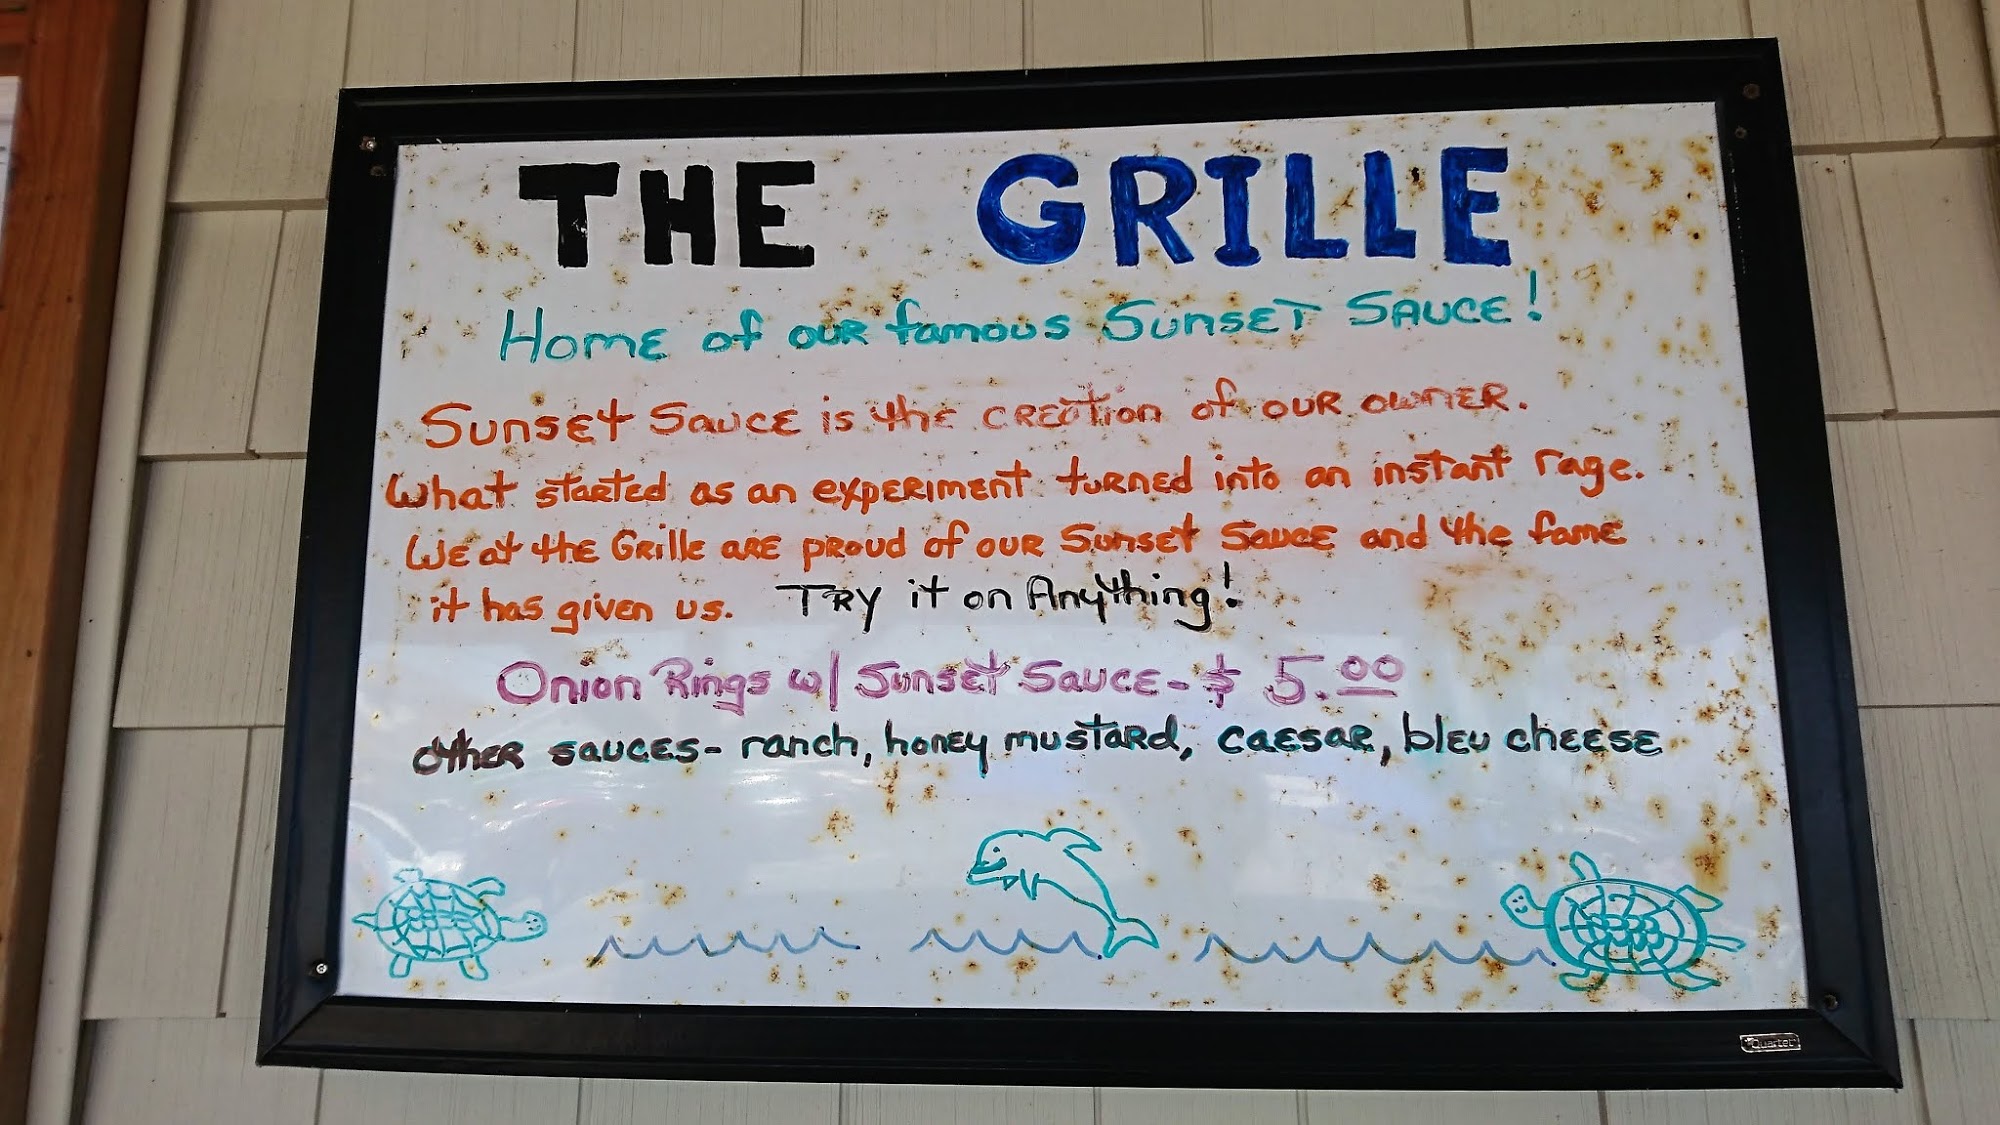 THE GRILLE
Home of our famous Sunset Sauce!
Sunset Sauce is the creation of our owner.
What started as an experiment turned into an instant rage.
We at the Grille are proud of our Sunset Sauce and the fame
it has given us. Try it on Anything!
Onion Rings w/ Sunset Sauce - $ 5.00
other sauces - ranch, honey mustard, caesar, bleu cheese
Quartet